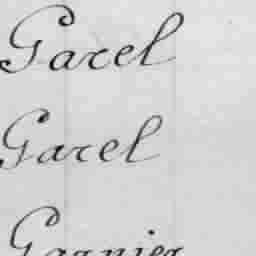 Garel
Garel
Garnier